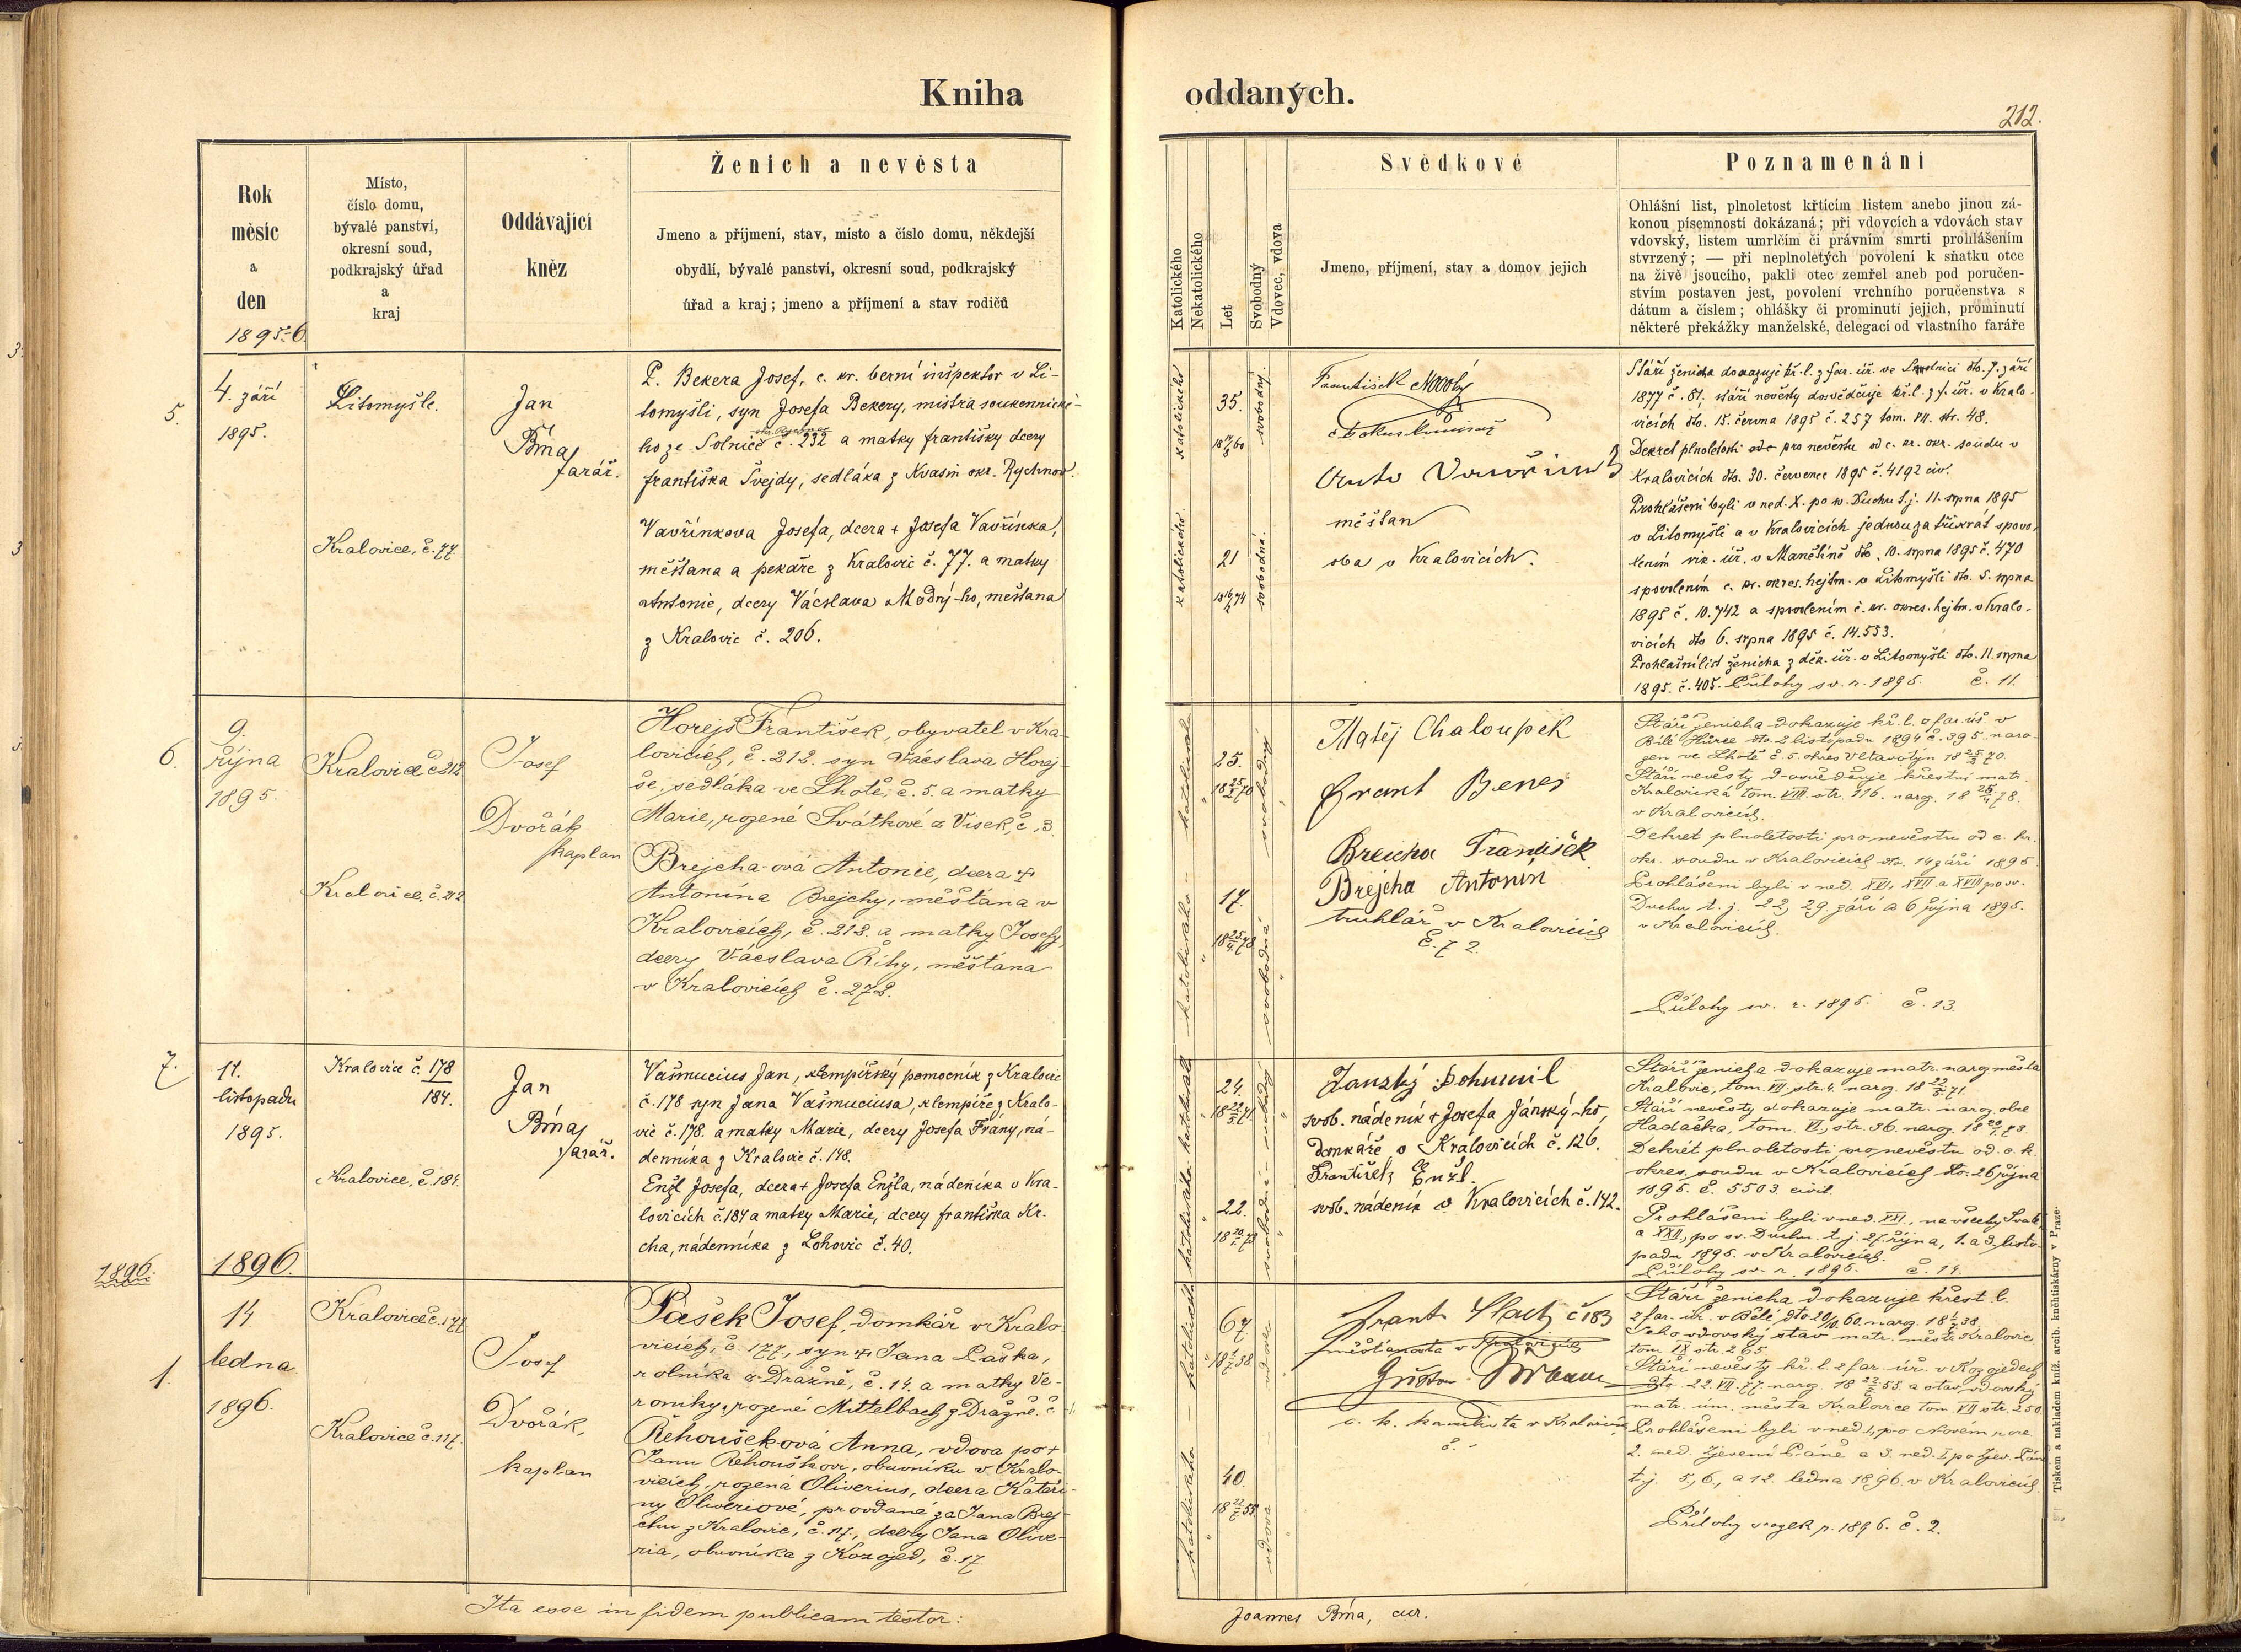 Kniha
oddaných.
212.
Rok
měsíc
a
den
1895-6.
Místo,
číslo domu,
bývalé panství,
okresní soud,
podkrajský úřad
a
kraj
Oddávající
kněz
Ženich a nevěsta
Jmeno a příjmení, stav, místo a číslo domu, někdejší
obydlí, bývalé panství, okresní soud, podkrajský
úřad a kraj; jmeno a příjmení a stav rodičů
Katolického
Nekatolického
Let
Svobodný
Vdovec, vdova
Svědkové
Jmeno, příjmení, stav a domov jejich
Poznamenání
Ohlášní list, plnoletost křticím listem anebo jinou zá-
konou písemností dokázaná; při vdovcích a vdovách stav
vdovský, listem umrlčím či právním smrti prohlášením
stvrzený; — při neplnoletých povolení k sňatku otce
na živě jsoucího, pakli otec zemřel aneb pod poručen-
stvím postaven jest, povolení vrchního poručenstva s
dátum a číslem; ohlášky či prominutí jejich, prominutí
některé překážky manželské, delegací od vlastního faráře
5.
4. září
1895.
Litomyšle.
Kralovice, č. 77.
Jan
Bíma
farář.
P. Bekera Josef, c. kr. berní inšpektor v Li-
tomyšli, syn Josefa Bekery, mistra soukennické-
ho ze Solnice č. 232 a matky františky dcery
františka Švejdy, sedláka z Kvasin okr. Rychnov.
Vavřínkova Josefa, dcera + Josefa Vavřínka,
měšťana a pekaře z Kralovic č. 77. a matky
Antonie, dcery Václava Modrý-ho, měšťana
z Kralovic č. 206.
katolického
35.
svobodný.
katolického.
21
svobodná.
František Modrý
měšťan
oba v Kralovicích.
Stáří ženicha dokazuje kř. l. z far. úř. ve Solnici dto. 7. září
1877 č. 81, stáří nevěsty dosvědčuje kř. l. z f. úř. v Kralo-
vicích dto. 15. června 1895 č. 257 tom. VII. str. 48.
Dekret plnoletosti pro nevěstu od c. kr. okr. soudu v
Kralovicích dto. 30. července 1895 č. 4192 civ.
Prohlášeni byli v ned. X. po sv. Duchu t. j. 11. srpna 1895
v Litomyšli a v Kralovicích jednou za třikrát s povo-
lením vik. úř. v Manětíně dto. 10. srpna 1895 č. 470
s povolením c. kr. okres. hejtm. v Litomyšli dto. 5. srpna
1895 č. 10.742 a s povolením c. kr. okres. hejtm. v Kralo-
vicích dto 6. srpna 1895 č. 14.553.
Prohlašní list ženicha z děk. úř. v Litomyšli dto. 11. srpna
1895. č. 405. Přílohy sv. r. 1895. č. 11.
6.
9.
října
1895.
Kralovice č. 212
Kralovice, č. 212
Josef
Dvořák
kaplan
Horejš František, obyvatel v Kra-
lovicích, č. 212. syn Václava Horej-
še, sedláka ve Lhotě, č. 5. a matky
Marie, rozené Svátkové z Visek, č. 3.
Brejcha-ová Antonie, dcera +
Antonína Brejchy, měšťana v
Kralovicích, č. 212. a matky Josefy,
dcery Václava Říhy, měšťana
v Kralovicích č. 272.
25.
17.
svobodná
Matěj Chaloupek
Frant Beneš
Brejcha František
Brejcha Antonín
truhlář v Kralovicích
č. 72.
Stáří ženicha dokazuje kř. l. z far. úř. v
Bílé Hůrce dto. 2 listopadu 1894 č. 395. naro-
zen ve Lhotě č. 5. okres Vltavotýn 18 25/2 70.
Stáří nevěsty dosvědčuje křestní matr.
Kralovická tom. VIII. str. 116. naroz. 18 25/4 78.
v Kralovicích.
Dekret plnoletosti pro nevěstu od c. kr.
okr. soudu v Kralovicích dto. 14 září 1895.
Prohlášeni byli v ned. XVI., XVII a XVIII po sv.
Duchu t. j. 22, 29 září a 6 října 1895.
v Kralovicích.
Přílohy sv. r. 1895. č. 13.
7.
11.
listopadu
1895.
Kralovice č. 178
184.
Kralovice, č. 184.
Jan
Bíma
farář.
Vašmucius Jan, klempířský pomocník z Kralovic
č. 178 syn Jana Vašmuciusa, klempíře z Kralo-
vic č. 178. a matky Marie, dcery Josefa Frany, ná-
denníka z Kralovic č. 148.
Enžl Josefa, dcera + Josefa Enžla, nádeníka v Kra-
lovicích č. 184 a matky Marie, dcery františka Kr-
cha, nádenníka z Lohovic č. 40.
24.
22.
Janský Bohumil
svob. nádeník + Josefa Jánský-ho,
domkáře v Kralovicích č. 126.
František Enžl.
svob. nádeník v Kralovicích č. 142.
Stáří ženicha dokazuje matr. naroz. města
Kralovic, tom. VII, str. 4. naroz. 18 22/5 71.
Stáří nevěsty dokazuje matr. naroz. obce
Hadačka, tom. VI., str. 36. naroz. 18 20/1 73.
Dekrét plnoletosti pro nevěstu od c. k.
okres. soudu v Kralovicích dto. 26 října
1895. č. 5503. civil.
Prohlášeni byli v ned. XXI., na všechy Svaté,
a XXII., po sv. Duchu t. j. 27. října, 1. a 3. listo-
padu 1895. v Kralovicích.
Přílohy sv. r. 1895. č. 14.
1896.
1896.
1.
14
ledna
1896.
Kralovice č. 177.
Kralovice č. 117.
Josef
Dvořák,
kaplan
Pašek Josef, domkář v Kralo-
vicích, č. 177., syn + Jana Paška,
rolníka z Dražně, č. 14. a matky Ve-
roniky, rozené Mittelbach z Dražně. č.
Řehoušková Anna, vdova po +
Janu Řehouškovi, obuvníku v Kralo-
vicích, rozená Oliverius, dcera Kateři-
ny Oliveriové, provdané za Jana Brej-
chu z Kralovic, č. 117., dcery Jana Olive-
ria, obuvníka z Kozojed, č. 17.
67.
vdovec
40.
vdova
Frant. č 183
c. k. v Kralovicích
Stáří ženicha dokazuje křest. l.
z far. úř. v Bělé, dto 20/10. 60. naroz. 18 1/7 38.
Jeho vdovský stav matr. města Kralovic
tom. IX str. 265.
Stáří nevěsty kř. l. z far. úř. v Kozojedech
dto. 22. VII. 77. naroz. 18 22/7 55. a stav vdovský
matr. úm. města Kralovice tom. VII str. 250.
Prohlášeni byli v ned. 1. po Novém roce
2. ned. Zjevení Páně a 3. ned. I po Zjev. Páně
t. j. 5., 6., a 12. ledna 1896. v Kralovicích.
Přílohy svazek r. 1896. č. 2.
Ita esse in fidem publicam testor:
Joannes Bíma, cur.
Tiskem a nákladem kníž. arcib. knihtiskárny v Praze.